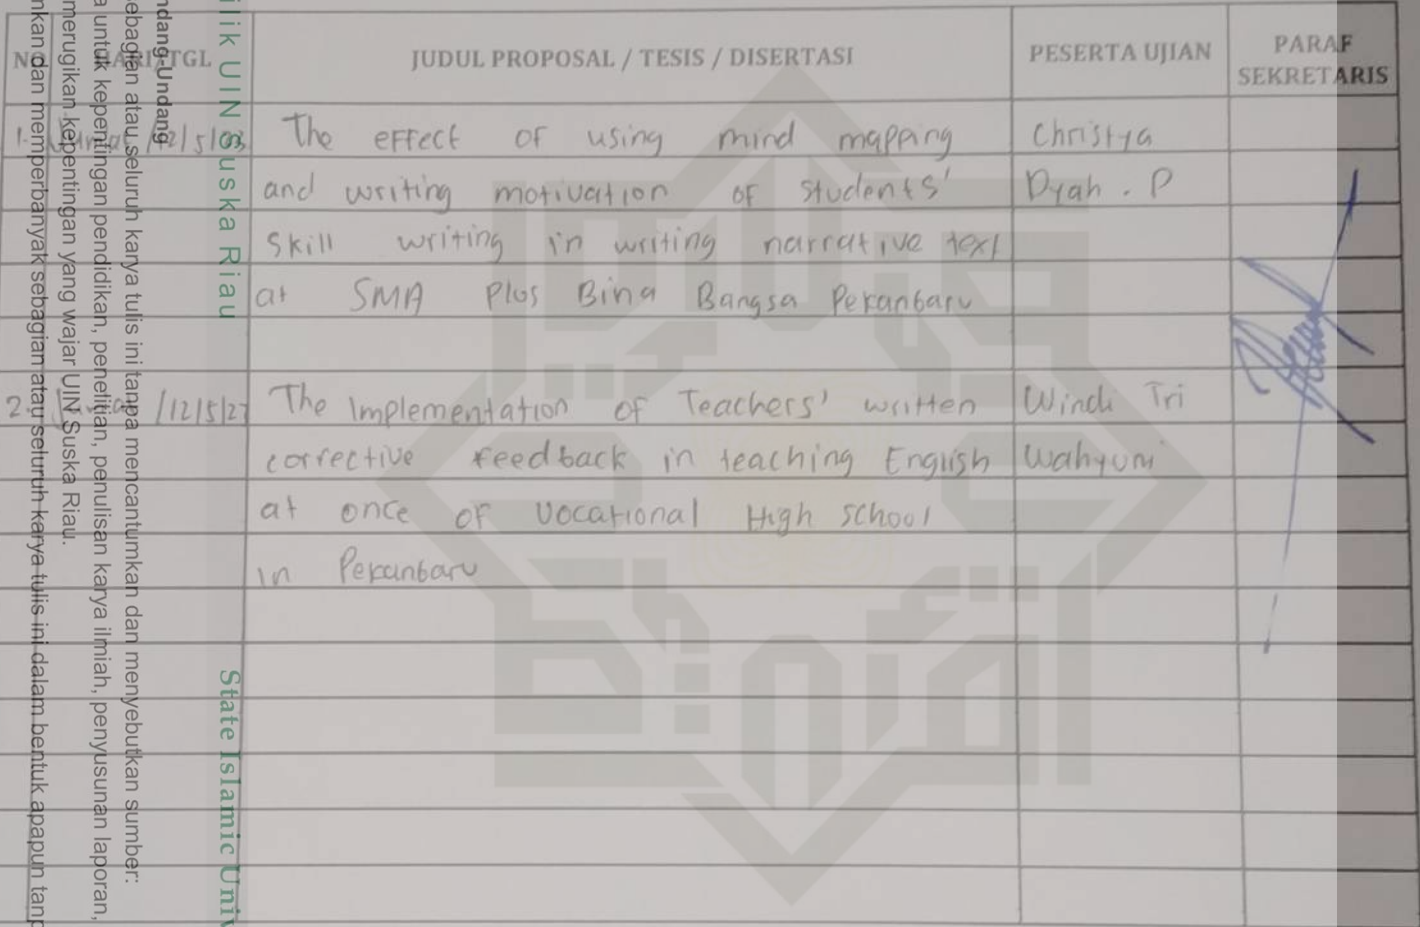 NO HARI/TGL JUDUL PROPOSAL / TESIS / DISERTASI PESERTA UJIAN PARAF SEKRETARIS
1. The effect of using mind mapping Christya
and writing motivation of students' Dyah . P
skill writing in writing narrative text
at SMA Plus Bina Bangsa Pekanbaru
2. /12/5/23 The Implementation of Teachers' written Windi Tri
corrective feedback in teaching English Wahyuni
at once of Vocational High School
in Pekanbaru
ilik UIN Suska Riau
State Islamic Univ
ndang-Undang
ebagian atau seluruh karya tulis ini tanpa mencantumkan dan menyebutkan sumber:
a untuk kepentingan pendidikan, penelitian, penulisan karya ilmiah, penyusunan laporan,
merugikan kepentingan yang wajar UIN Suska Riau.
nkan dan memperbanyak sebagian atau seluruh karya tulis ini dalam bentuk apapun tanp